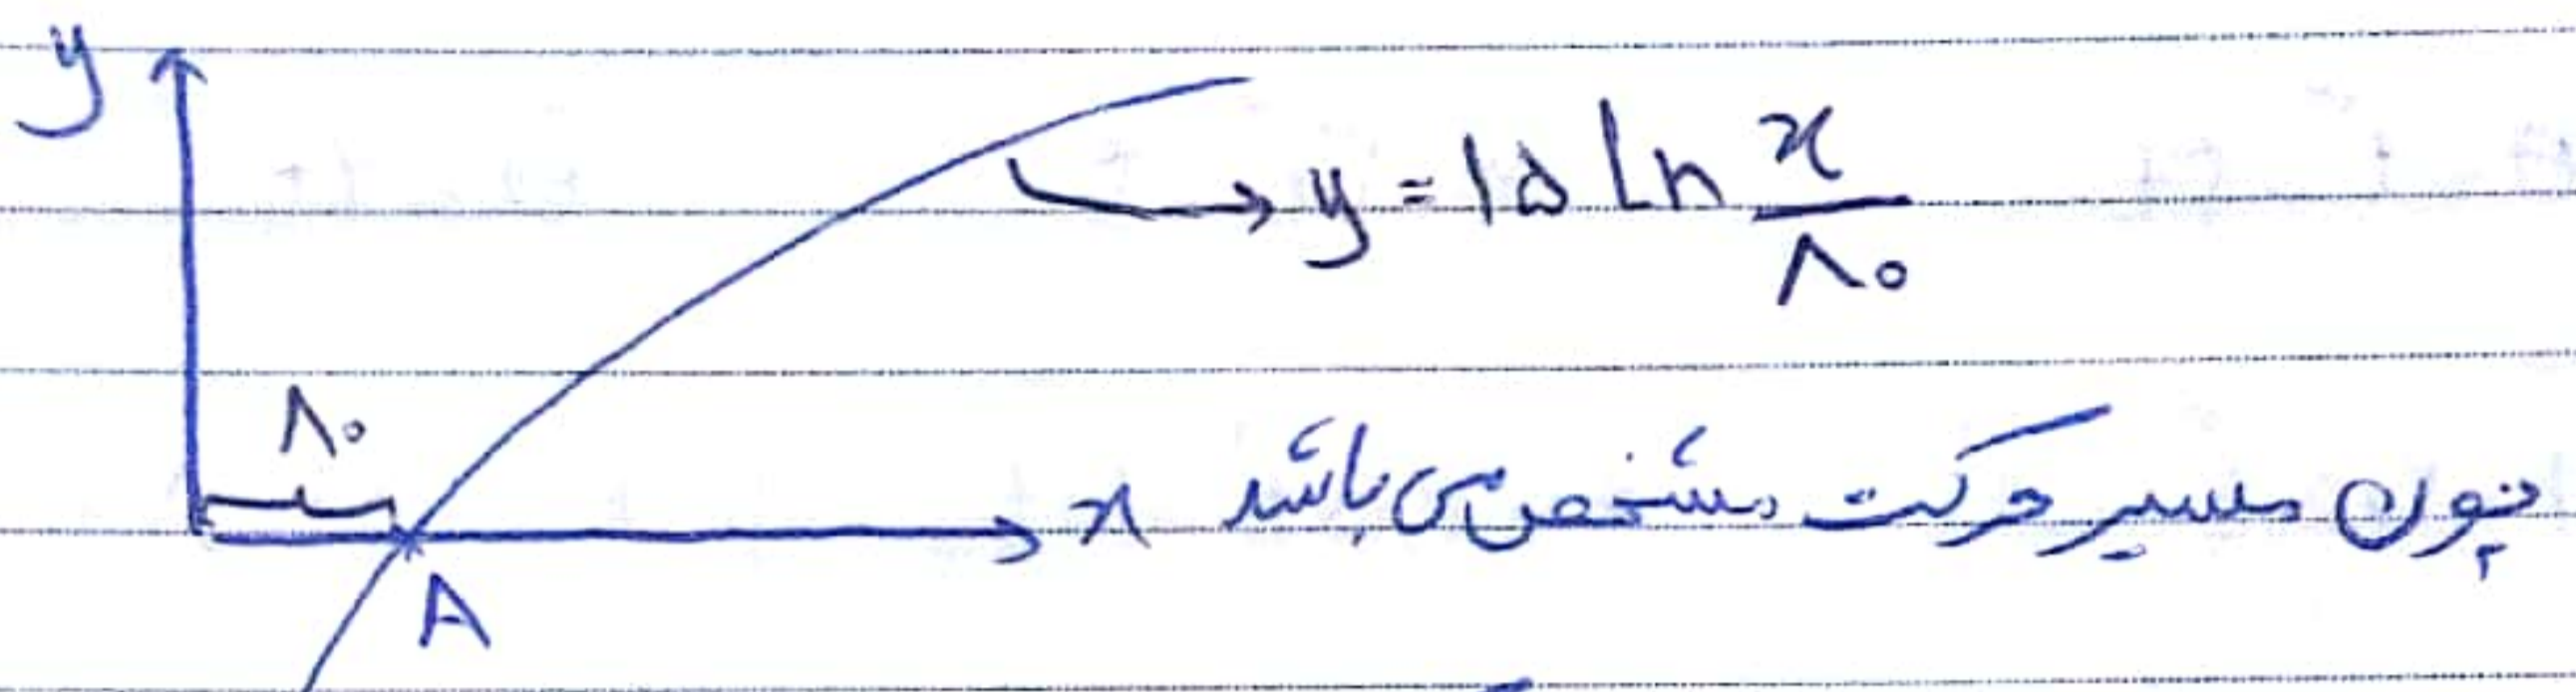 y
y = ۱۵ Ln x/۸۰
۸۰
x
چون مسیر حرکت مشخص می‌باشد
A